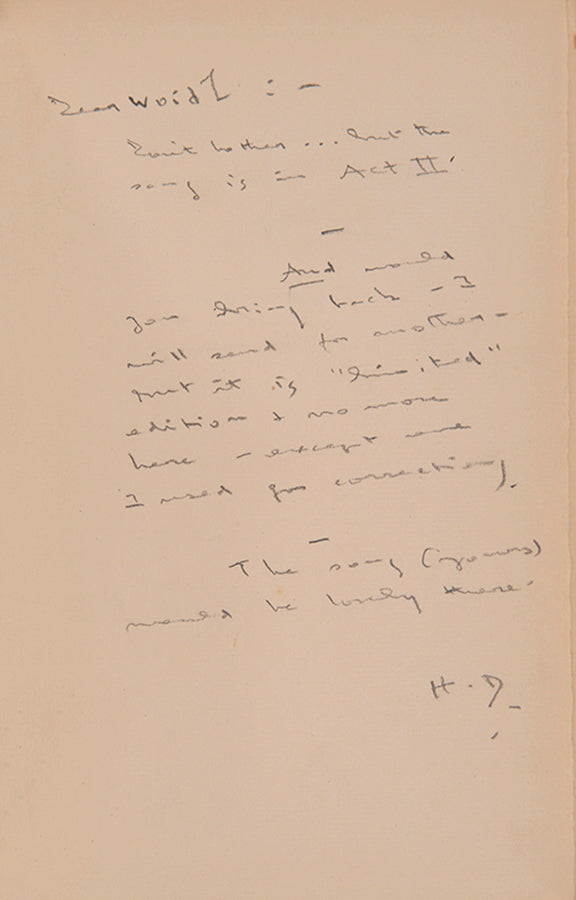 Dear : -
Don't bother ... but the
song is in Act II.
—
And would
you bring back - I
will send for another -
but it is "limited"
edition & no more
here - except one
I used for correcting).
—
The song (yours)
would be lovely there.
H.D.